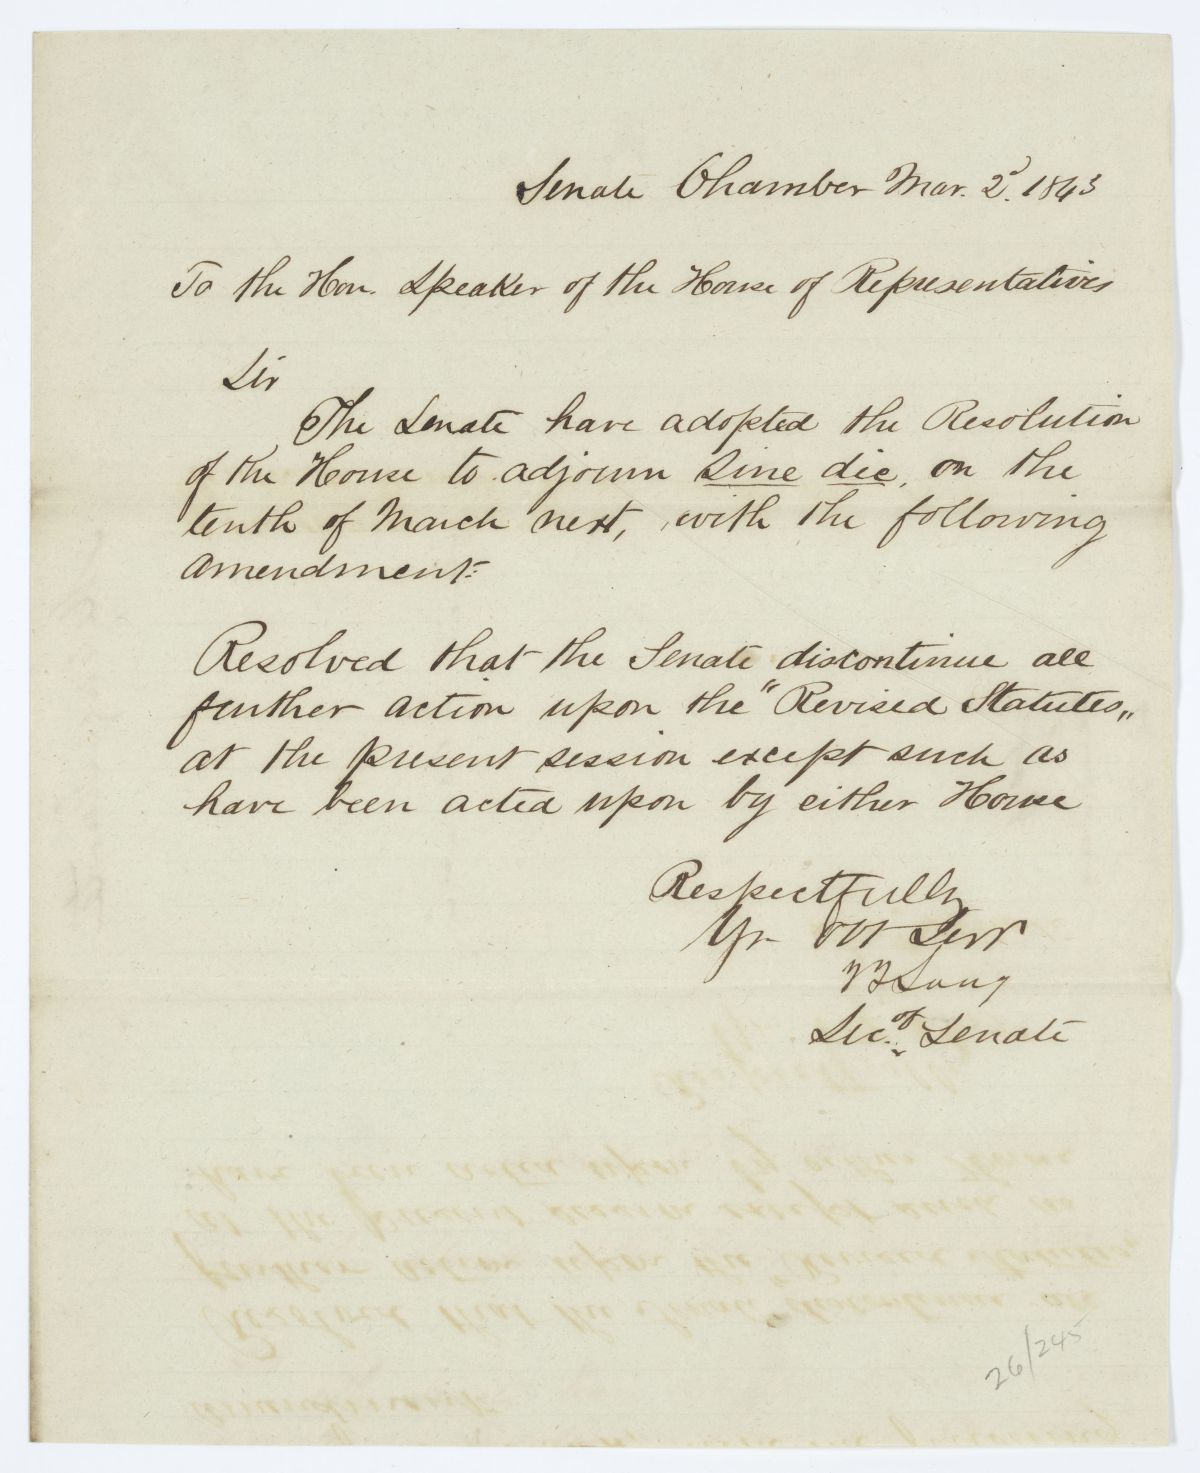 Senate Chamber Mar. 2d. 1843
To the Hon. Speaker of the House of Representatives
Sir
The Senate have adopted the Resolution
of the House to adjourn sine die, on the
tenth of March next, with the following
amendment:
Resolved that the Senate discontinue all
further action upon the "Revised Statutes„
at the present session except such as
have been acted upon by either House
Respectfully
Yr Obt Servt
Sec. of Senate
26/245